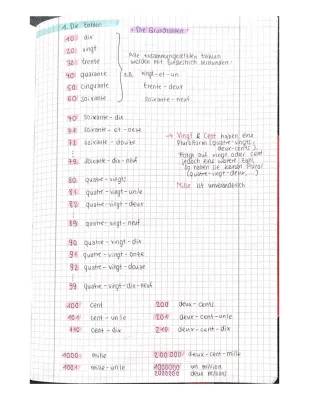 1. Die Zahlen
→ Die Grundzahlen
10: dix
20: vingt
30: trente
40: quarante
50: cinquante
60: soixante
Alle zusammengesetzten Zahlen
werden mit Bindestrich verbunden:
z.B. vingt-et-un
trente-deux
soixante-neuf
70: soixante-dix
71: soixante-et-onze
72: soixante-douze
79: soixante-dix-neuf
→ Vingt & Cent haben eine
Pluralform (quatre-vingts,
deux-cents).
Folgt auf vingt oder cent
jedoch eine weitere Zahl,
so haben sie keinen Plural
(quatre-vingt-deux,...)
Mille ist unveränderlich
80: quatre-vingts
81: quatre-vingt-un/e
82: quatre-vingt-deux
89: quatre-vingt-neuf
90: quatre-vingt-dix
91: quatre-vingt-onze
92: quatre-vingt-douze
99: quatre-vingt-dix-neuf
100: cent
101: cent-un/e
110: cent-dix
200: deux-cents
201: deux-cent-un/e
210: deux-cent-dix
1000: mille
1001: mille-un/e
200'000: deux-cent-mille
1000000: un million
2000000: deux millions